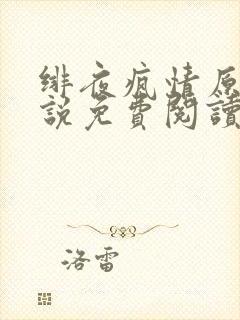 緋夜疯情原
說免費閱讀
洛雷